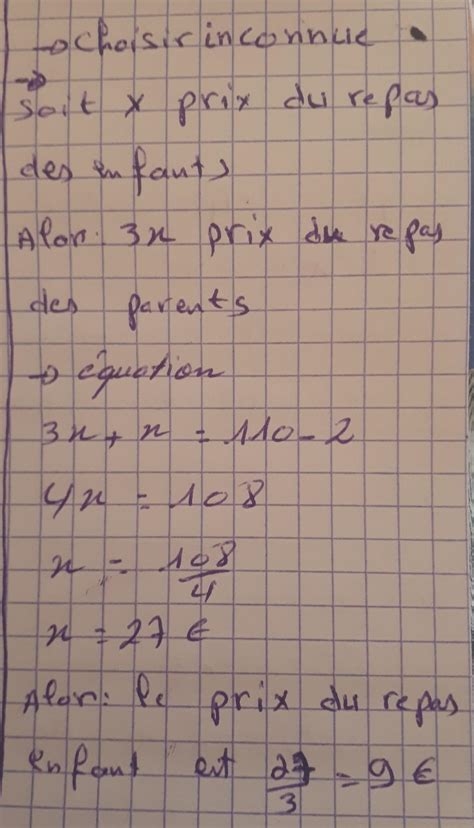 → choisir inconnue
→
Soit x prix du repas
des enfants
Alor: 3x prix du repas
des parents
→ équation
3x + x = 110 - 2
4x = 108
x = 108/4
x = 27 €
Alor: le prix du repas
enfant est 27/3 = 9 €